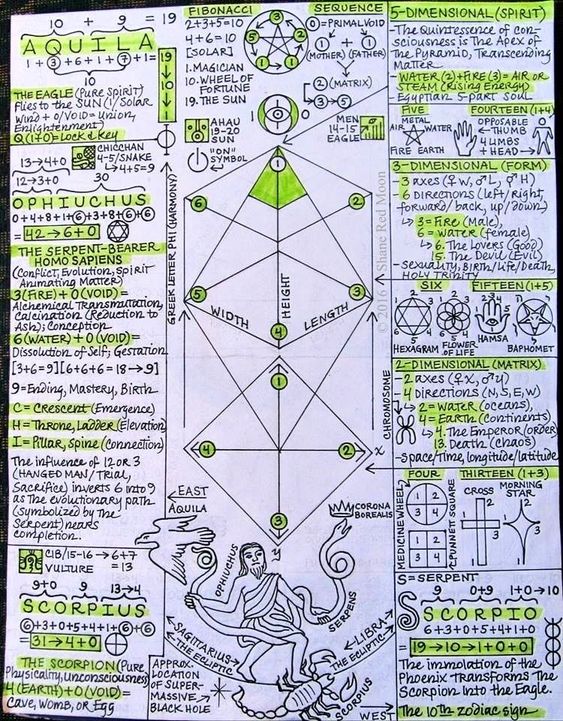 10 + 9 = 19
AQUILA
1+3+6+1+7+1=
10
19→10→1
THE EAGLE (Pure Spirit)
Flies to the SUN (1/Solar
Wind + 0/VOID = Union,
Enlightenment)
Q (1+0) = Lock & key
CHICCHAN
4-5/SNAKE
↳4+5=9
13→4+0
12→3+0
30
OPHIUCHUS
0+4+8+1+6+3+8+6+6
= 42→6+0
THE SERPENT-BEARER
HOMO SAPIENS
(Conflict, Evolution, Spirit
Animating Matter)
3 (FIRE) + 0 (VOID) =
Alchemical Transmutation,
Calcination (Reduction to
Ash); Conception
6 (WATER) + 0 (VOID) =
Dissolution of Self; Gestation
[3+6=9] [6+6+6=18→9]
9 = Ending, Mastery, Birth
C = Crescent (Emergence)
H = Throne, Ladder (Elevation)
I = Pillar, Spine (Connection)
The influence of 12 or 3
(HANGED MAN/TRIAL,
Sacrifice) inverts 6 into 9
as the evolutionary path
(symbolized by the
Serpent) nears
completion.
CIB/15-16→6+7
VULTURE = 13
9+0 9 13→4
SCORPIUS
6+3+0+5+4+1+6+6
= 31→4+0
THE SCORPION (Pure
Physicality, Unconsciousness)
4 (EARTH) + 0 (VOID) =
Cave, Womb, or Egg
FIBONACCI SEQUENCE
2+3+5=10
4+6=10
[SOLAR]
1. MAGICIAN
10. WHEEL OF
FORTUNE
19. THE SUN
1
2
3
4
5
0 = PRIMAL VOID
1 + 1
(MOTHER) (FATHER)
2 (MATRIX)
3→5
AHAU
19-20
SUN
"ON"
SYMBOL
MEN
14-15
EAGLE
GREEK LETTER PHI (HARMONY)
1
6
2
5
3
4
WIDTH
HEIGHT
LENGTH
© 2016 Shane Red Moon
CHROMOSOME
1
4
2
3
x
y
EAST
AQUILA
CORONA
BOREALIS
OPHIUCHUS
SERPENS
SAGITTARIUS
THE ECLIPTIC
LIBRA
THE ECLIPTIC
APPROX.
LOCATION
OF SUPER-
MASSIVE
BLACK HOLE
SCORPIUS
WEST
5-DIMENSIONAL (SPIRIT)
The Quintessence of Con-
sciousness is The Apex of
The Pyramid, Transcending
Matter
WATER (2) + FIRE (3) = AIR or
STEAM (Rising Energy)
Egyptian 5-part Soul
FIVE
FOURTEEN (1+4)
METAL
AIR
WATER
FIRE EARTH
OPPOSABLE
THUMB
4 LIMBS
+ HEAD→
3-DIMENSIONAL (FORM)
- 3 axes (♀W, ♂L, ♂H)
- 6 Directions (left/right,
forward/back, up/down)
↳ 3 = Fire (Male),
6 = Water (Female)
↳ 6. The Lovers (Good)
15. The Devil (Evil)
- Sexuality, Birth/Life/Death,
HOLY TRINITY
SIX
FIFTEEN (1+5)
HEXAGRAM
FLOWER
OF LIFE
HAMSA
BAPHOMET
2-DIMENSIONAL (MATRIX)
- 2 axes (♀x, ♂y)
- 4 Directions (N, S, E, W)
↳ 2 = Water (oceans),
4 = Earth (continents)
↳ 4. The Emperor (order)
13. Death (Chaos)
- Space/Time, longitude/latitude
FOUR
THIRTEEN (1+3)
MEDICINE WHEEL
1 2
3 4
1 2
3 4
PUNNETT SQUARE
CROSS
MORNING
STAR
S = SERPENT
9 0+9 1+0→10
SCORPIO
6+3+0+5+4+1+0
= 19→10→1+0+0
The immolation of the
Phoenix transforms The
Scorpion into the Eagle.
The 10th zodiac sign